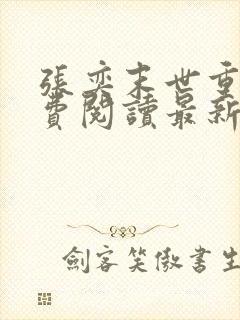 張奕末世重
費閱讀最新
劍客笑傲書生